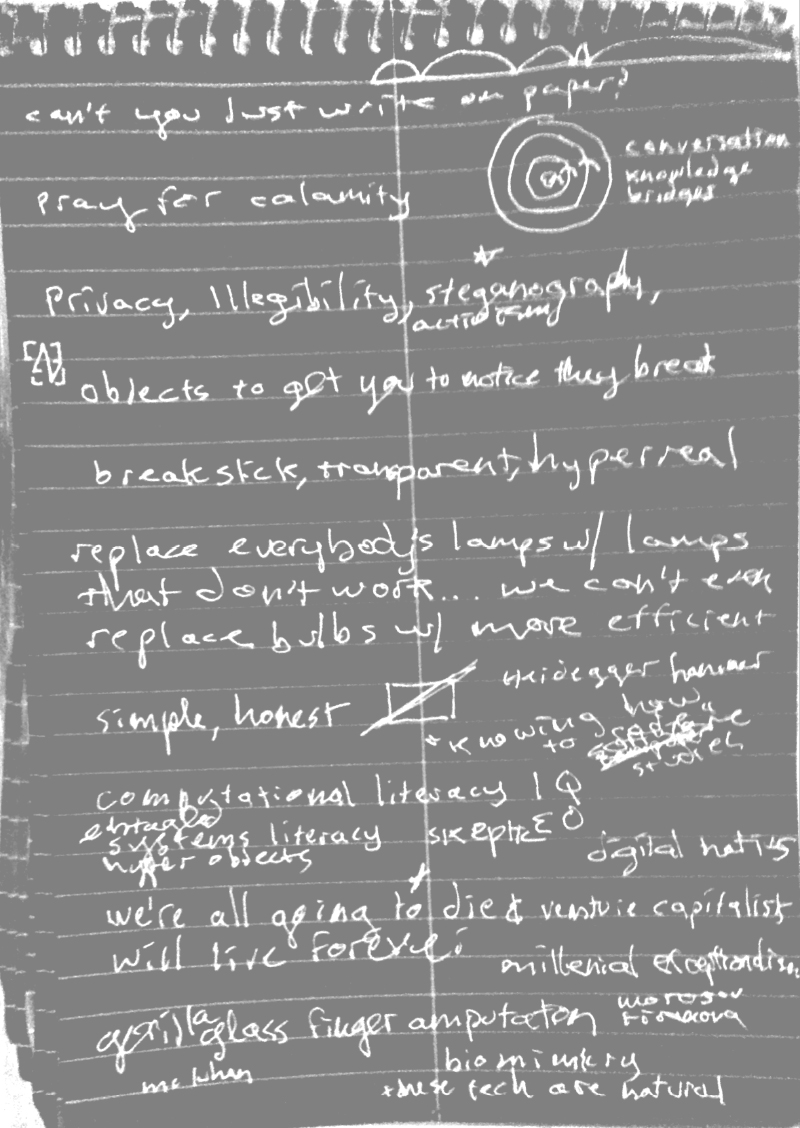 can't you just write on paper?
conversation
knowledge
bridges
pray for calamity
Privacy, Illegibility, steganography,
objects to get you to notice they break
break stick, transparent, hyperreal
replace everybody's lamps w/ lamps
that don't work... we can't even
replace bulbs w/ more efficient
Heidegger hammer
simple, honest
*knowing how
to
studies
computational literacy IQ
systems literacy
hyper objects
digital natives
we're all going to die & venture capitalist
will live forever
millenial
gorilla glass finger amputation
biomimicry
these tech are natural